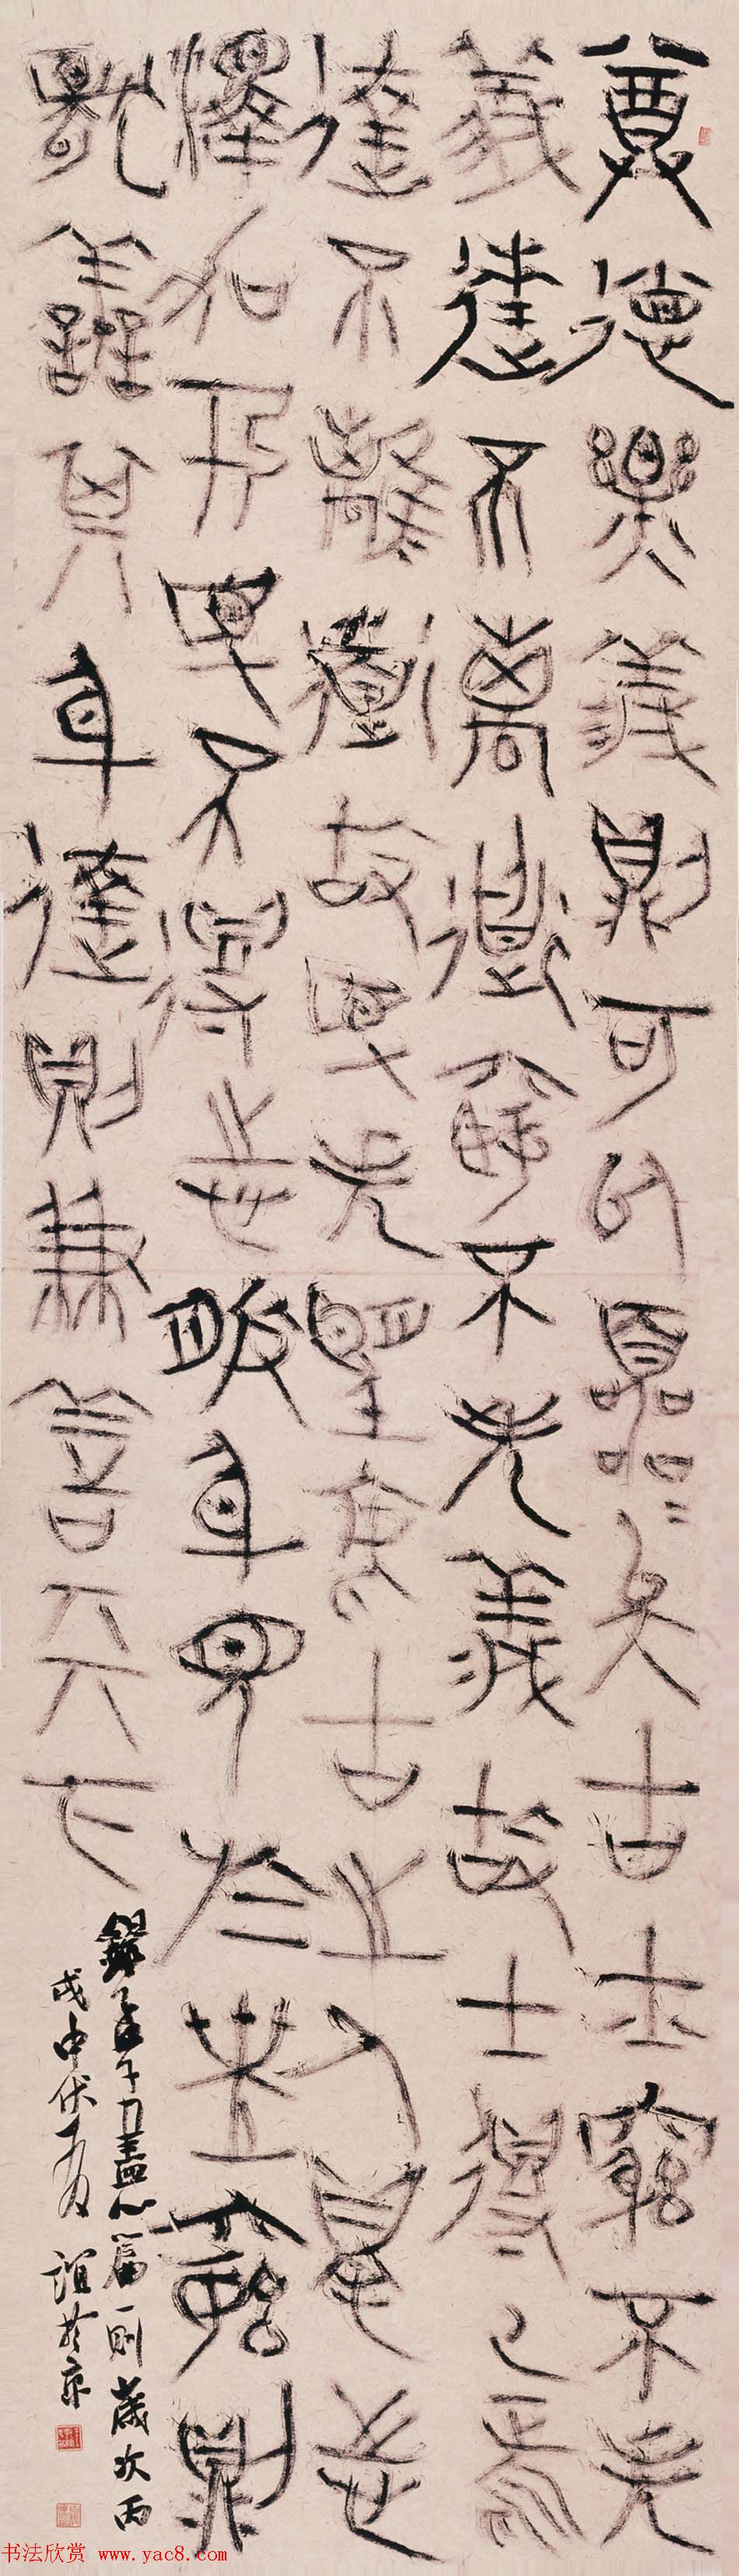 尊德樂義則可以囂=矣古士窮不失
義達不離道窮不失義故士得己焉
達不離道故民失望焉古之人得志
澤加于民不得志脩身見於世窮則
獨善其身達則兼善天下
錄孟子盡心篇一則歲次丙
戌中伏誼於京
书法欣赏 www.yac8.com